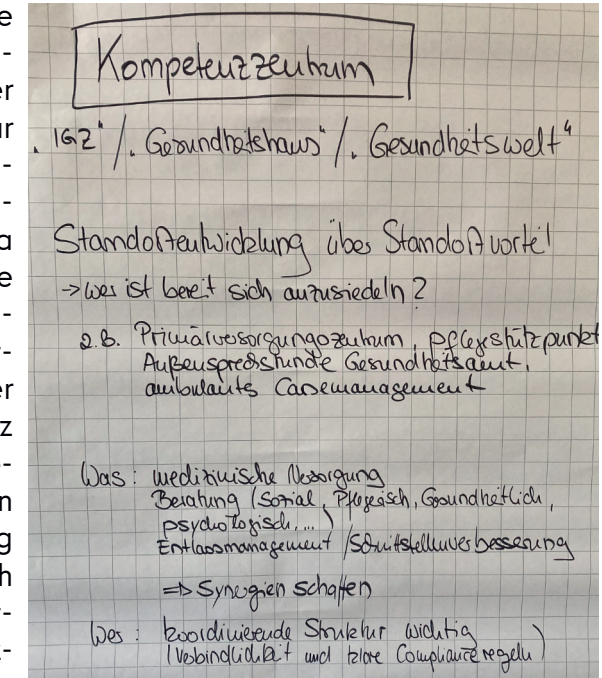 Kompetenzzentrum
„IGZ“ / „Gesundheitshaus“ / „Gesundheitswelt“
Standortentwicklung über Standortvorteil
→ wer ist bereit sich anzusiedeln?
z.B. Primärversorgungszentrum, Pflegestützpunkt
Außensprechstunde Gesundheitsamt,
ambulantes Casemanagement
Was: medizinische Versorgung
Beratung (Sozial, Pflegerisch, Gesundheitlich,
psychologisch, ...)
Entlassmanagement / Schnittstellenverbesserung
=> Synergien schaffen
Wer: koordinierende Struktur wichtig
(Verbindlichkeit und klare Complianceregeln)